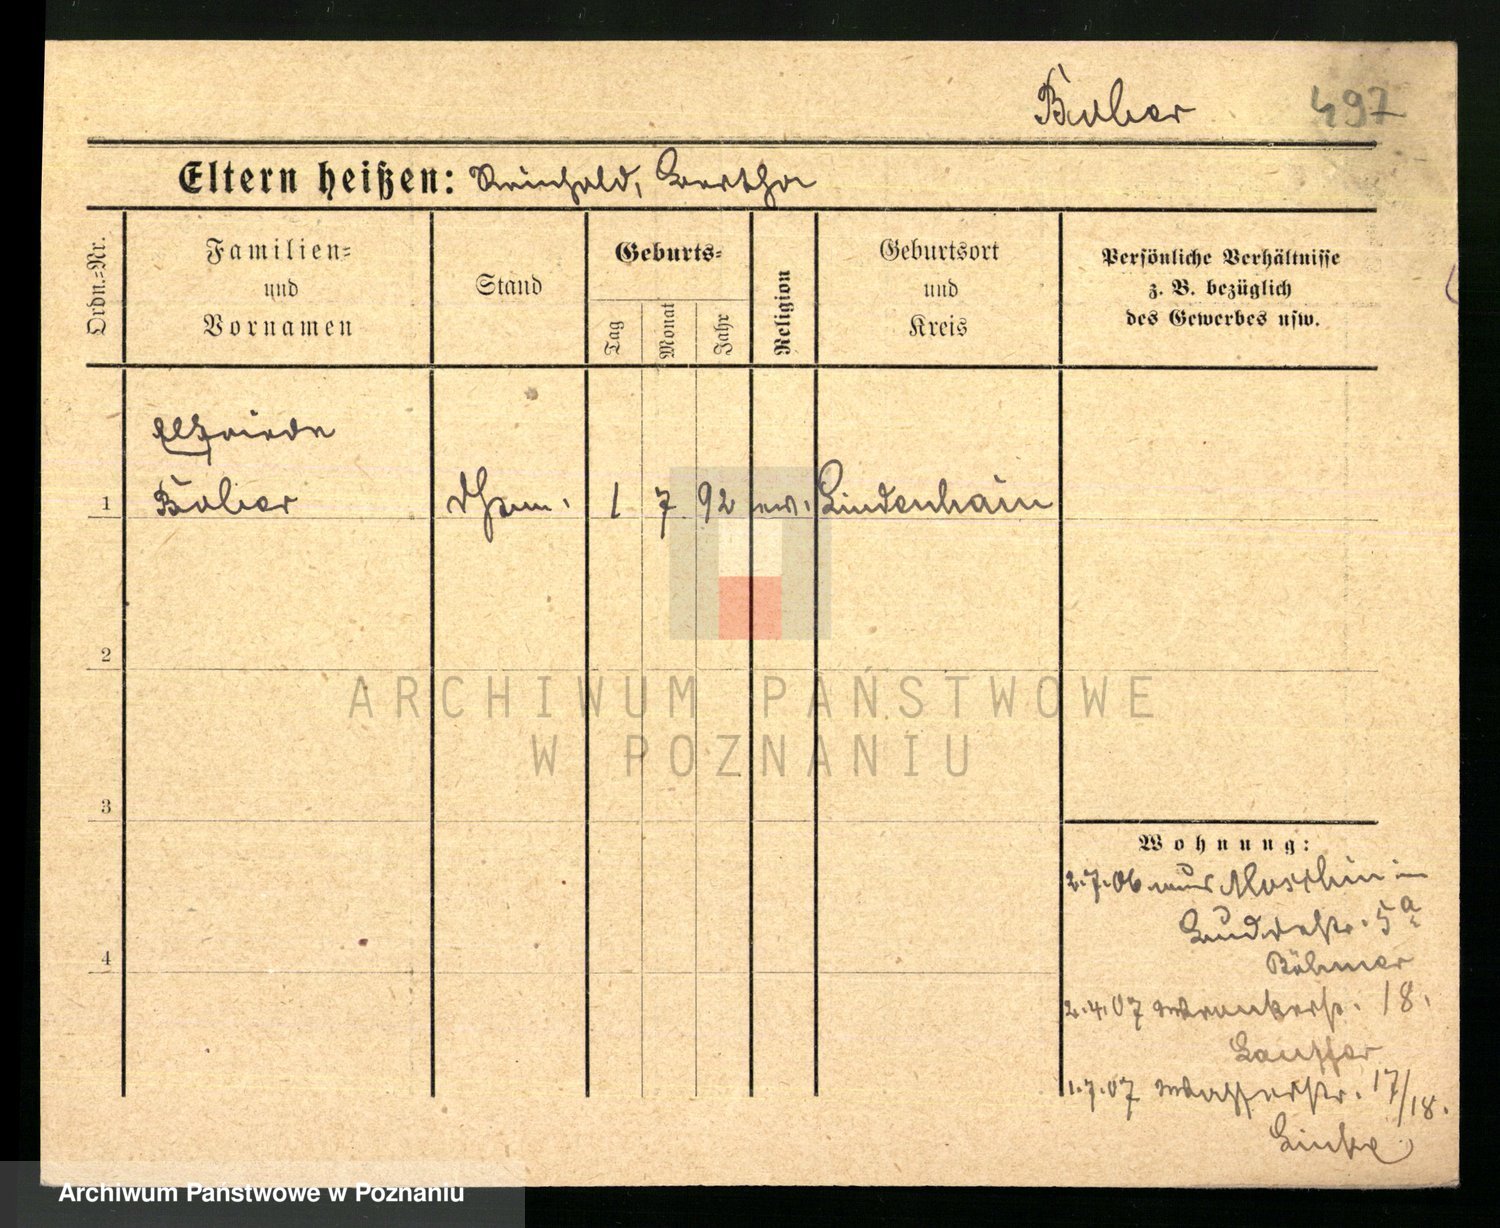 Buber 497
Eltern heißen: Reinhold, Bertha
Ordn.-Nr.
Familien-
und
Vornamen
Stand
Geburts-
Tag
Monat
Jahr
Religion
Geburtsort
und
Kreis
Persönliche Verhältnisse
z. B. bezüglich
des Gewerbes usw.
Elfriede
1 Buber 1 7 92 ev. Lindenhain
2
ARCHIWUM PAŃSTWOWE
W POZNANIU
3
Wohnung:
2.7.06 aus Moschin in
5a
Böhmer
4
2.4.07 18.
1.7.07 Wasserstr. 17/18.
Linke
Archiwum Państwowe w Poznaniu